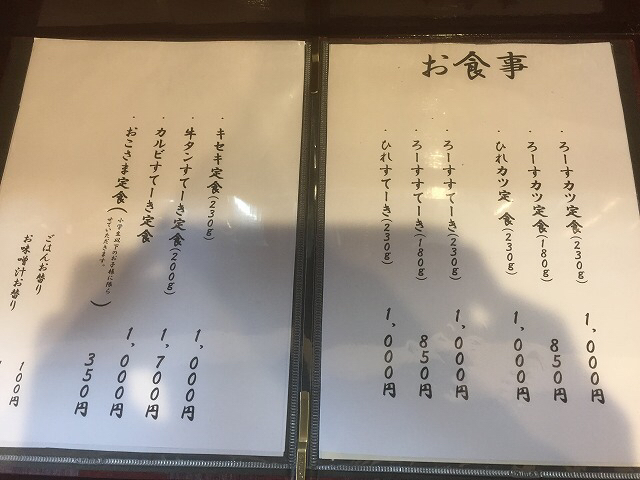 お食事
・ろーすカツ定食(230g) 1,000円
・ろーすカツ定食(180g) 850円
・ひれカツ定 食(230g) 1,000円
・ろーすすてーき(230g) 1,000円
・ろーすすてーき(180g) 850円
・ひれすてーき(230g) 1,000円
・キセキ定食(230g) 1,000円
・牛タンすてーき定食(200g) 1,700円
・カルビすてーき定食 1,000円
・おこさま定食(小学生以下のお子様に限らせていただきます。) 350円
ごはんお替り 100円
お味噌汁お替り